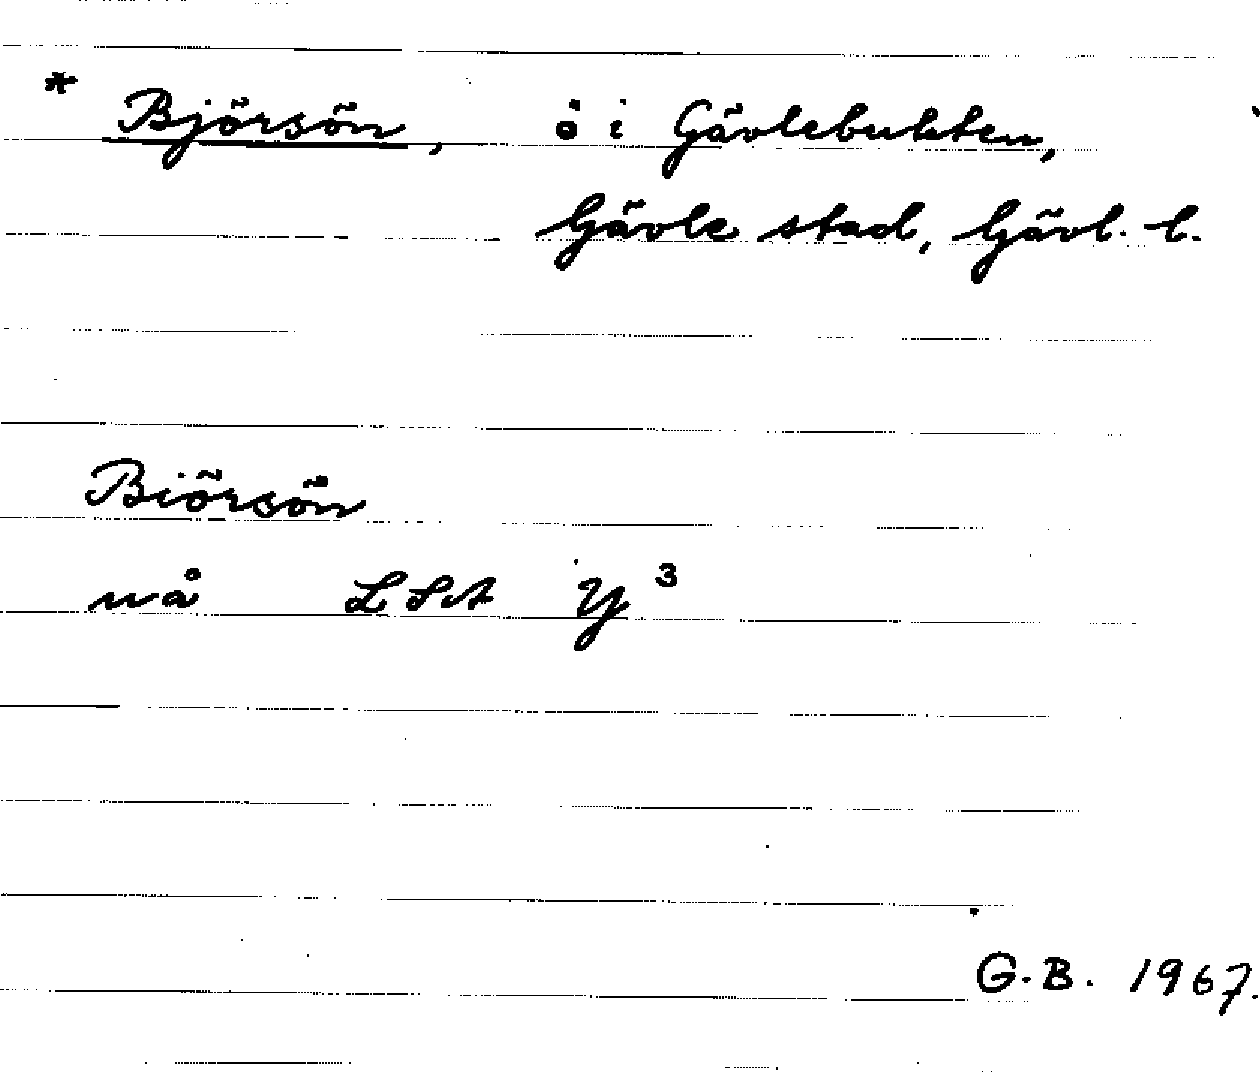 * Björsön, ö i Gävlebukten,
Gävle stad, Gävl. l.
Biörsön
nå LSA Y³
G.B. 1967.